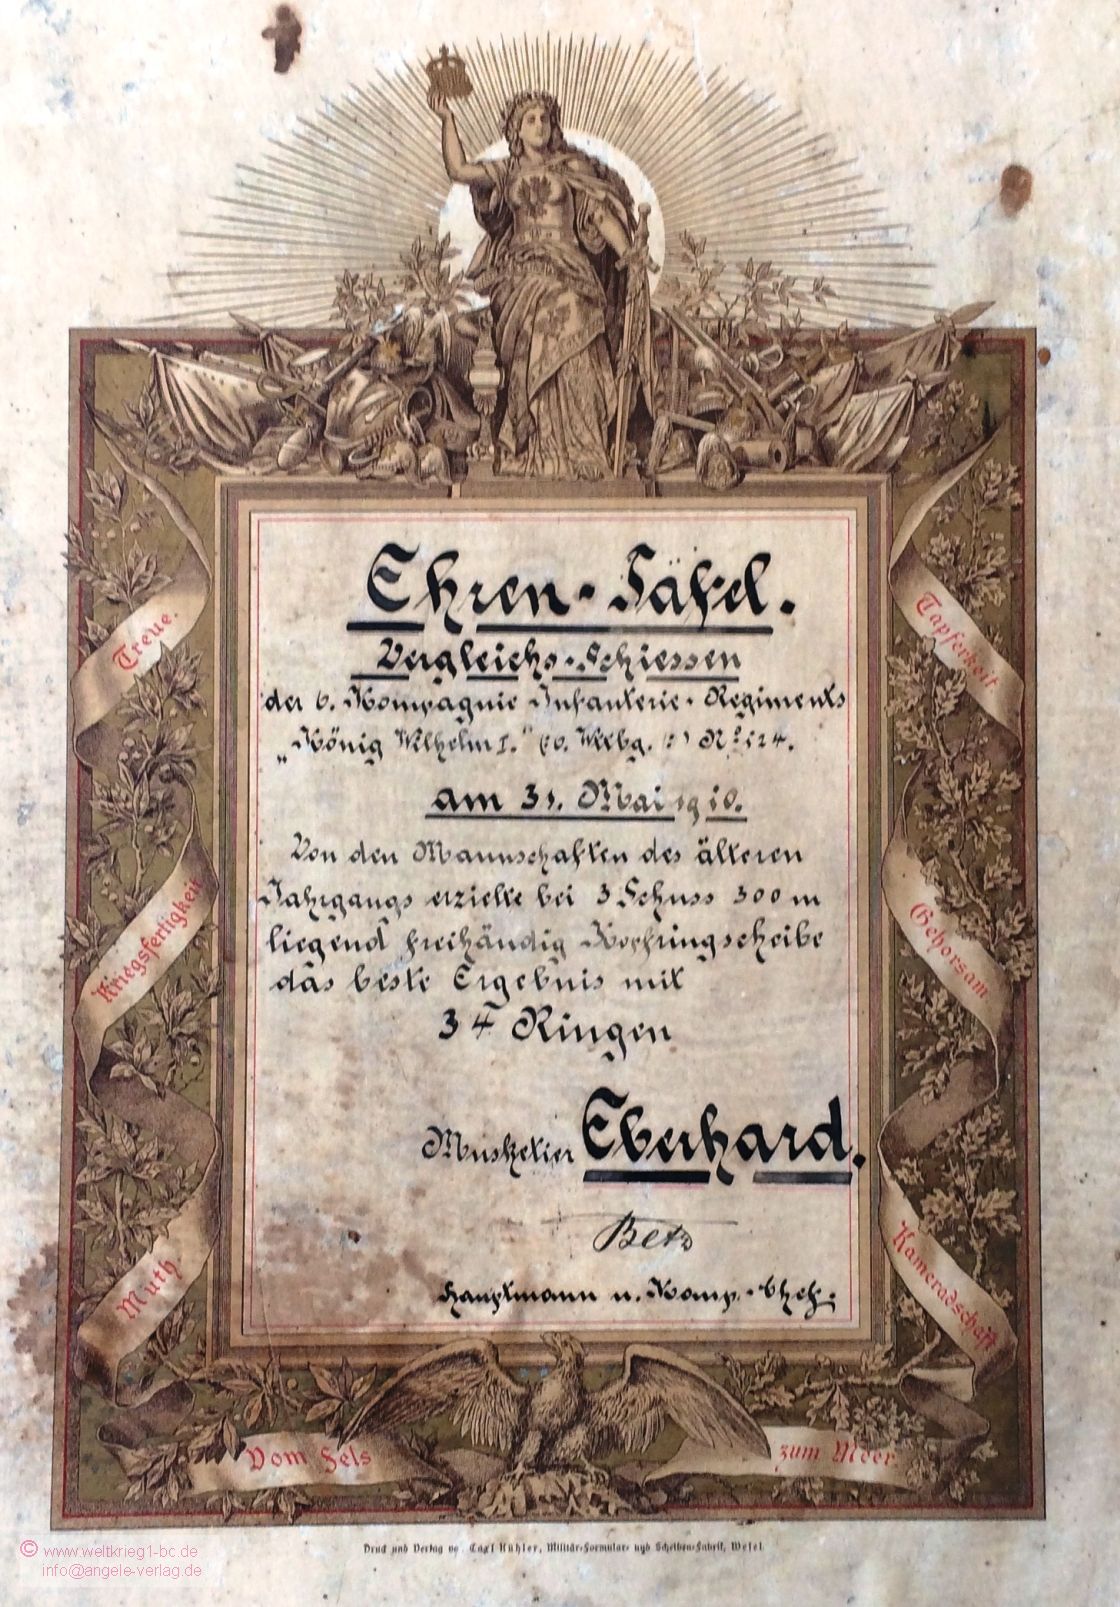 Ehren-Täfel.
Vergleichs-Schiessen
der 6. Kompagnie Infanterie-Regiments
„König Wilhelm I." (6. Wttbg.) No 124.
am 31. Mai 1910.
Von den Mannschaften des älteren
Jahrgangs erzielte bei 3 Schuss 300 m
liegend freihändig Kopfringscheibe
das beste Ergebnis mit
34 Ringen
Musketier Eberhard.
Betz
Hauptmann u. Komp.-Chef.
Treue.
Kriegsfertigkeit
Muth
Tapferkeit
Gehorsam
Kameradschaft
Vom Fels
zum Meer
Druck und Verlag von Carl Kühler, Militär-Formular- und Scheiben-Fabrik, Wesel.
© www.weltkrieg1-bc.de
info@angele-verlag.de